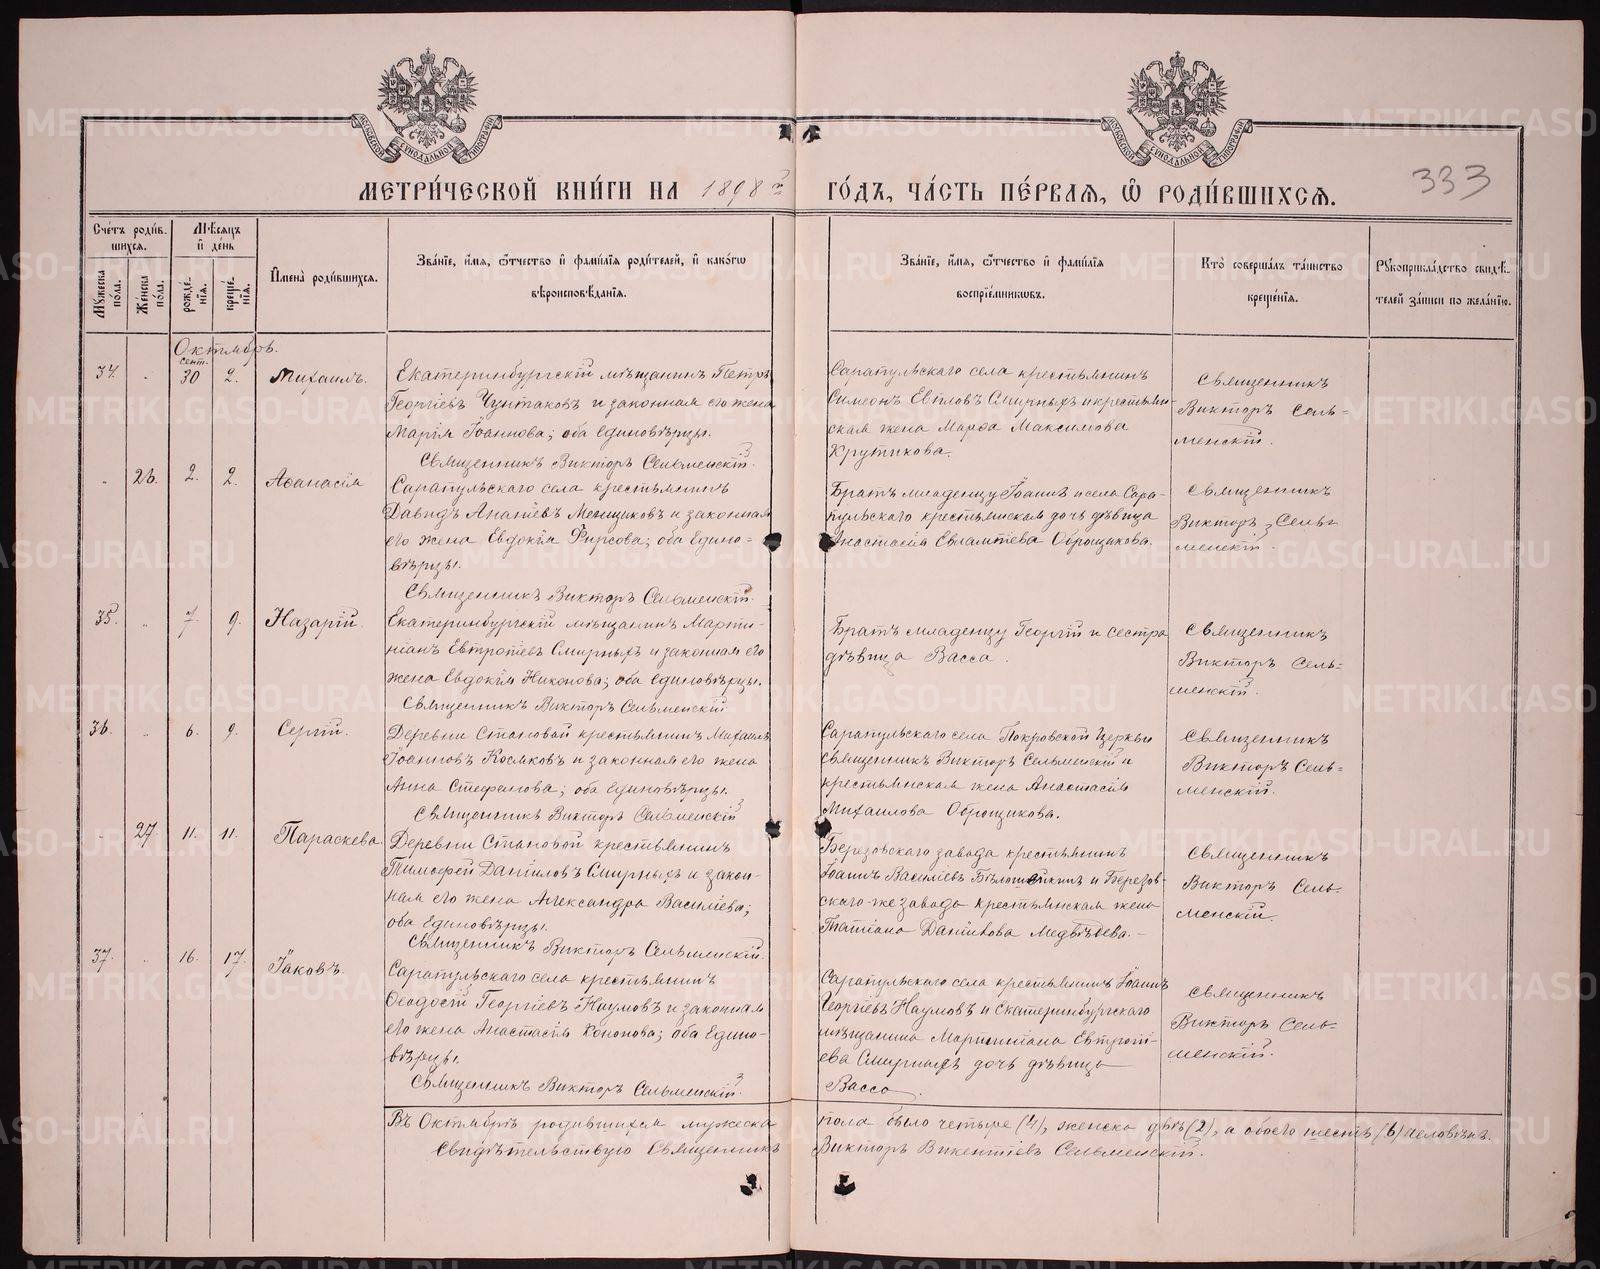 МЕТРИ́ЧЕСКОЙ КНИ́ГИ НА 1898й
ГО́ДЪ, ЧА́СТЬ ПЕ́РВАЯ, Ѽ РОДИ́ВШИХСЯ.
333
Сче́тъ роди́в-
шихся.
Мѣ́сяцъ
и де́нь
Му́жеска по́ла.
Же́нска по́ла.
рожде́-нія.
креще́-нія.
Имена̀ роди́вшихся.
Зва́ніе, и́мя, ѻ́тчество и фами́лія роди́телей, и како́гѡ
вѣроисповѣ́данія.
Зва́ніе, и́мя, ѻ́тчество и фами́лія
воспріе́мниковъ.
Кто̀ соверша́лъ та́инство
креще́нія.
Рукоприкла́дство свидѣ́-
телей за́писи по жела́нію.
Октябрь.
сент.
34. 30 2. Михаилъ.
Екатеринбургскій мѣщанинъ Петръ
Георгіевъ Чунтаковъ и законная его жена
Марія Іоаннова; оба единовѣрцы.
Священникъ Викторъ Сельменскій.
Сарапульскаго села крестьянинъ
Симеонъ Евпловъ Смирныхъ и крестьян-
ская жена Марѳа Максимова
Крутикова.
Священникъ
Викторъ Сель-
менскій.
26. 2. 2. Аѳанасія
Сарапульскаго села крестьянинъ
Давидъ Ананіевъ Менщиковъ и законная
его жена Евдокія Фирсова; оба едино-
вѣрцы.
Священникъ Викторъ Сельменскій.
Братъ младенцу Іоаннъ и села Сара-
пульскаго крестьянская дочь дѣвица
Анастасія Евлампіева Оброщикова.
Священникъ
Викторъ Сель-
менскій.
35. 7. 9. Назарій.
Екатеринбургскій мѣщанинъ Марти-
ніанъ Евтропіевъ Смирныхъ и законная его
жена Евдокія Никонова; оба единовѣрцы.
Священникъ Викторъ Сельменскій
Братъ младенцу Георгій и сестра
дѣвица Васса.
Священникъ
Викторъ Сель-
менскій.
36. 6. 9. Сергій.
Деревни Становой крестьянинъ Михаилъ
Іоанновъ Косяковъ и законная его жена
Анна Стефанова; оба единовѣрцы.
Священникъ Викторъ Сельменскій
Сарапульскаго села Покровской Церкви
священникъ Викторъ Сельменскій и
крестьянская жена Анастасія
Михаилова Оброщикова.
Священникъ
Викторъ Сель-
менскій.
27. 11. 11. Параскева.
Деревни Становой крестьянинъ
Тимоѳей Даніиловъ Смирныхъ и закон-
ная его жена Александра Васильева;
оба единовѣрцы.
Священникъ Викторъ Сельменскій.
Березовскаго завода крестьянинъ
Іоаннъ Василіевъ и Березов-
скаго-же завода крестьянская жена
Татіана Даніилова Медвѣдева.
Священникъ
Викторъ Сель-
менскій.
37. 16. 17. Іаковъ.
Сарапульскаго села крестьянинъ
Ѳеодосій Георгіевъ Наумовъ и законная
его жена Анастасія Кононова; оба едино-
вѣрцы.
Священникъ Викторъ Сельменскій.
Сарапульскаго села крестьянинъ Іоаннъ
Георгіевъ Наумовъ и Екатеринбургскаго
мѣщанина Мартиніана Евтропі-
ева Смирныхъ дочь дѣвица
Васса.
Священникъ
Викторъ Сель-
менскій.
Въ Октябрѣ родившихся мужеска пола было четыре (4), женска двѣ (2), а обоего шесть (6) человѣкъ.
Свидѣтельствую Священникъ Викторъ Викентіевъ Сельменскій.
METRIKI.GASO-URAL.RU